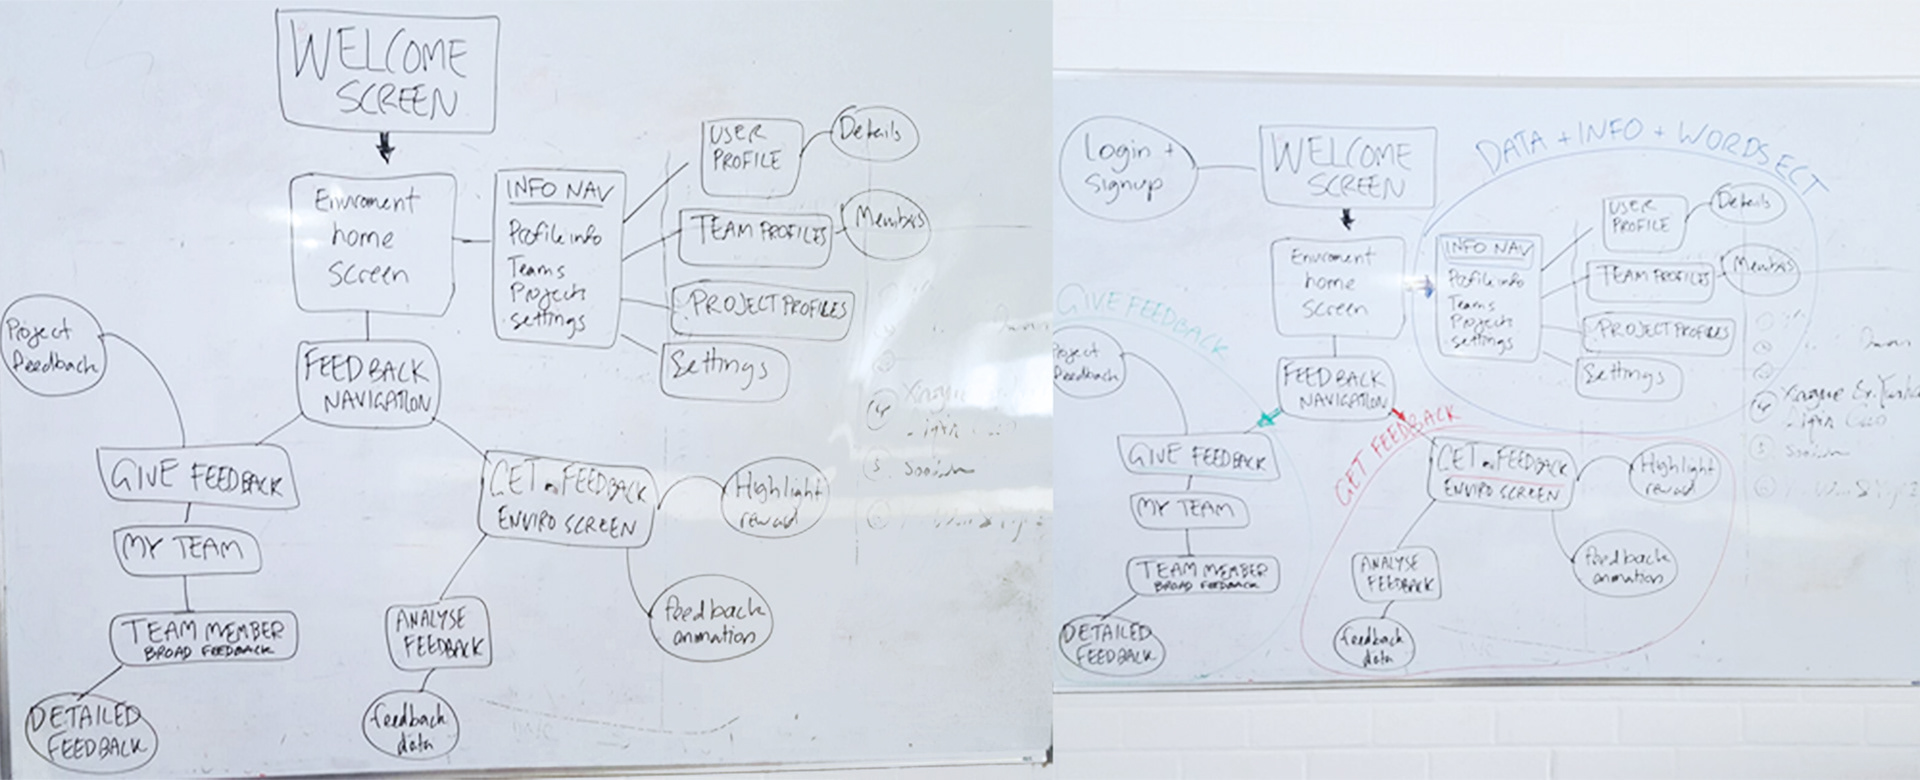 WELCOME
SCREEN
Enviroment
home
screen
INFO NAV
Profile info
Teams
Projects
settings
USER
PROFILE
Details
TEAM PROFILES
Members
PROJECT PROFILES
Settings
Project
feedback
FEEDBACK
NAVIGATION
GIVE FEEDBACK
MY TEAM
TEAM MEMBER
BROAD FEEDBACK
DETAILED
FEEDBACK
GET FEEDBACK
ENVIRO SCREEN
Highlight
reward
ANALYSE
FEEDBACK
feedback
data
feedback
animation
Login +
signup
WELCOME
SCREEN
DATA + INFO + WORDS ECT
Enviroment
home
screen
INFO NAV
Profile info
Teams
Projects
settings
USER
PROFILE
Details
TEAM PROFILES
Members
PROJECT PROFILES
Settings
GIVE FEEDBACK
Project
feedback
FEEDBACK
NAVIGATION
GIVE FEEDBACK
MY TEAM
TEAM MEMBER
BROAD FEEDBACK
DETAILED
FEEDBACK
GET FEEDBACK
GET FEEDBACK
ENVIRO SCREEN
Highlight
reward
ANALYSE
FEEDBACK
feedback
data
feedback
animation